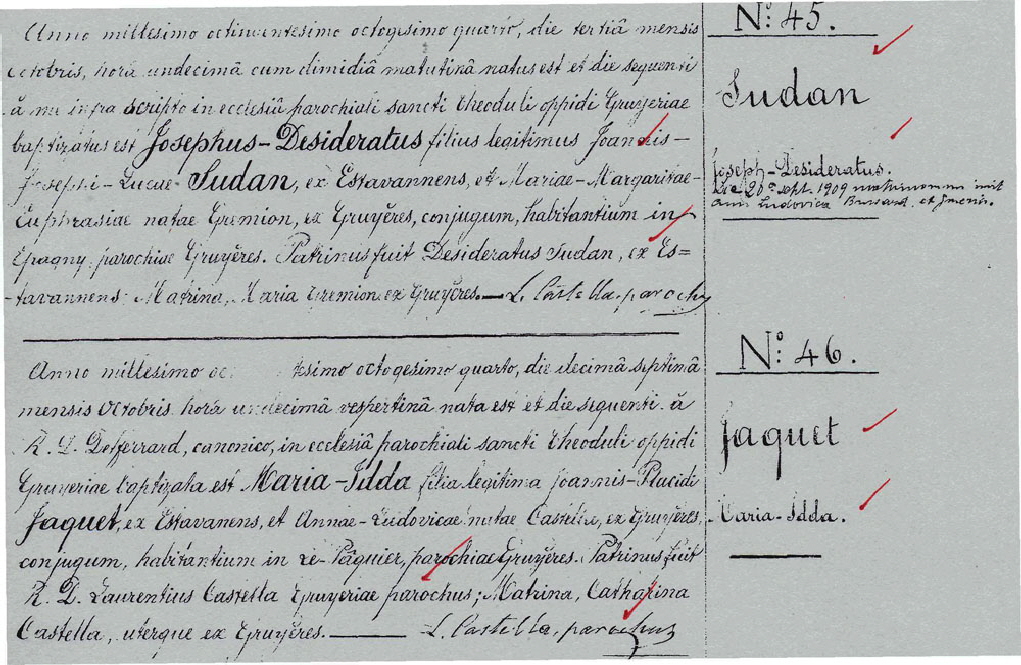 Anno millesimo octincentesimo octogesimo quarto, die tertiâ mensis
octobris, horâ undecimâ cum dimidiâ matutinâ natus est et die sequenti
â me infra scripto in ecclesiâ parochiali sancti Theoduli oppidi Gruyeriae
baptizatus est Josephus-Desideratus filius legitimus Joannis-
Josephi-Lucae-Sudan, ex Estavannens, et Mariae-Margaritae-
Euphrasiae natae Gremion, ex Gruyères, conjugum, habitantium in
Epagny parochiae Gruyères. Patrinus fuit Desideratus Sudan, ex Es=
tavannens: Matrina, Maria Gremion ex Gruyères.— L. Castella, paroch
N: 45.
Sudan
Joseph-Desideratus.
Die 20ª sept. 1909 matrimonium init
cum Ludovica Bussard, et Gruerii.
Anno millesimo oc tesimo octogesimo quarto, die decimâ septimâ
mensis Octobris horâ undecimâ vespertinâ nata est et die sequenti â
R. D. Defferrard, canonico, in ecclesiâ parochiali sancti Theoduli oppidi
Gruyeriae baptizata est Maria-Idda filia legitima Joannis-Placidi
Jaquet, ex Estavanens, et Annae-Ludovicae natae Castella, ex Gruyères,
conjugum, habitantium in Le-Pâquier, parochiae Gruyères. Patrinus fuit
R. D. Laurentius Castella Gruyeriae parochus; Matrina, Catharina
Castella, uterque ex Gruyères. — L. Castella, parochus
N: 46.
Jaquet
Maria-Idda.